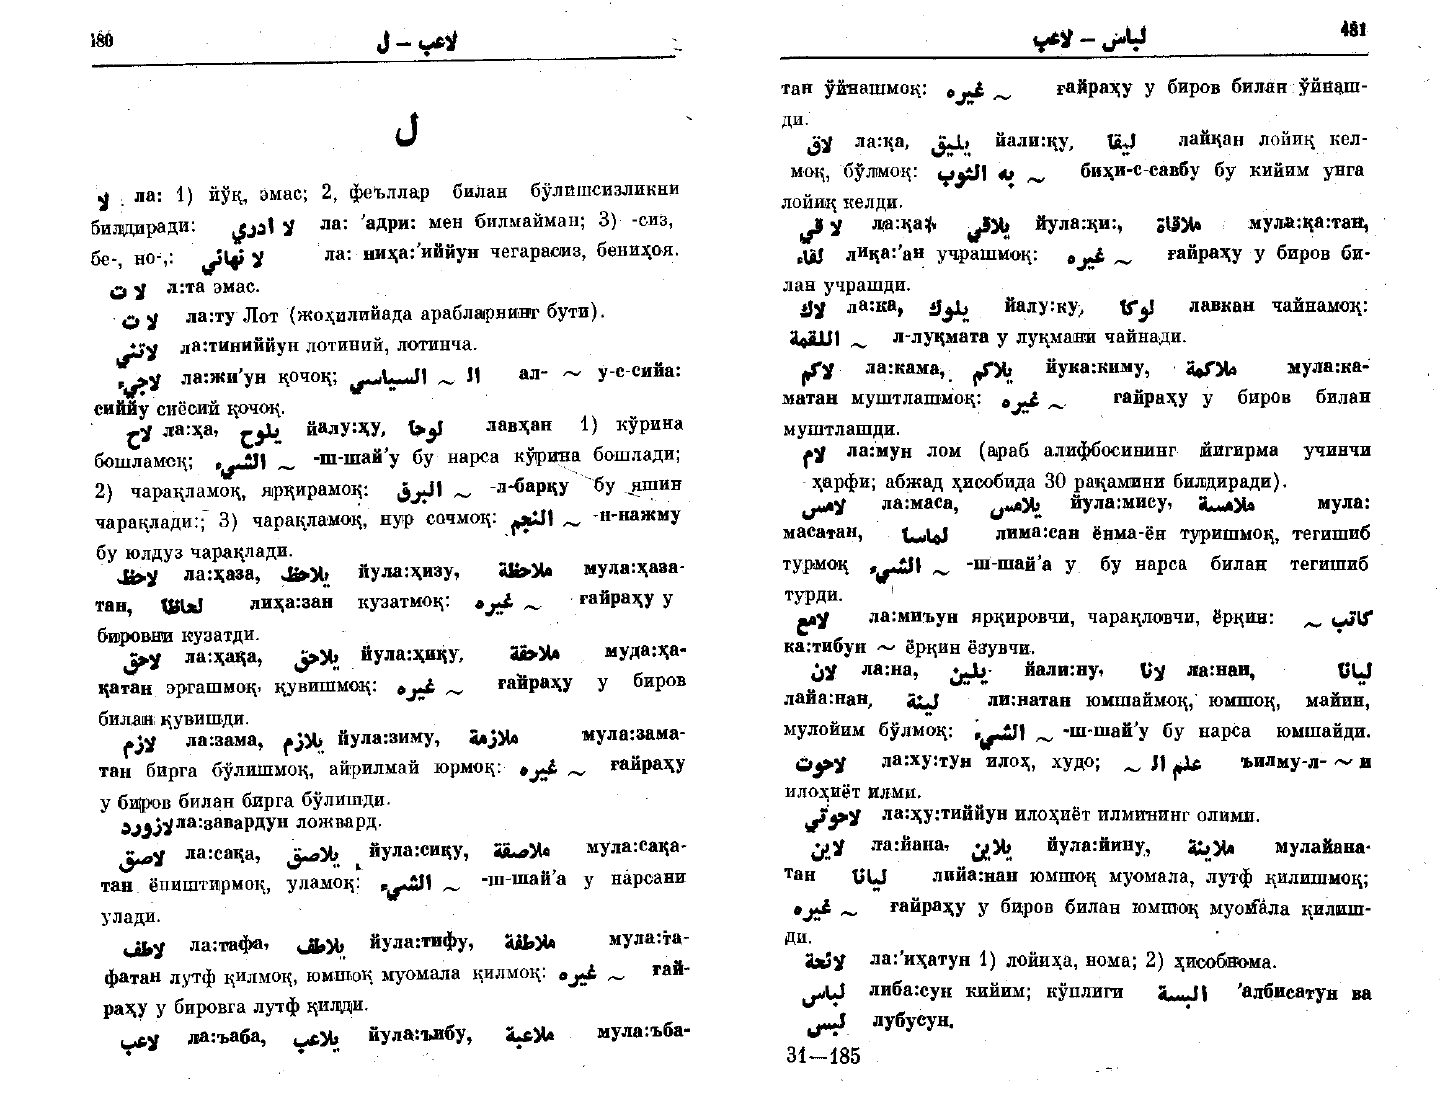 480 لاعب – ل
ل
لا ла: 1) йўқ, эмас; 2, феъллар билан бўлишсизликни
билдиради: لا ادري ла: 'адри: мен билмайман; 3) -сиз,
бе-, но-,: لا نهائي ла: ниҳа:'иййун чегарасиз, бениҳоя.
لا ت л:та эмас.
لا ت ла:ту Лот (жоҳилийада арабларнинг бути).
لاتني ла:тиниййун лотиний, лотинча.
لاجيء ла:жи'ун қочоқ; ال ~ السياسي ал- ~ у-с-сийа:
сиййу сиёсий қочоқ.
لاح ла:ҳа, يلوح йалу:ҳу, لوحا лавҳан 1) кўрина
бошламоқ; ~ الشيء -ш-шай'у бу нарса кўрина бошлади;
2) чарақламоқ, ярқирамоқ: ~ البرق -л-барқу бу яшин
чарақлади:; 3) чарақламоқ, нур сочмоқ: ~ النجم -н-нажму
бу юлдуз чарақлади.
لاحظ ла:ҳаза, يلاحظ йула:ҳизу, ملاحظة мула:ҳаза-
тан, لحاظا лиҳа:зан кузатмоқ: ~ غيره ғайраҳу у
бировни кузатди.
لاحق ла:ҳақа, يلاحق йула:ҳиқу, ملاحقة муда:ҳа-
қатан эргашмоқ, қувишмоқ: ~ غيره ғайраҳу у биров
билан қувишди.
لازم ла:зама, يلازم йула:зиму, ملازمة мула:зама-
тан бирга бўлишмоқ, айрилмай юрмоқ: ~ غيره ғайраҳу
у биров билан бирга бўлишди.
لازورد ла:завардун ложвард.
لاصق ла:сақа, يلاصق йула:сиқу, ملاصقة мула:сақа-
тан ёпиштирмоқ, уламоқ: ~ الشيء -ш-шай'а у нарсани
улади.
لاطف ла:тафа, يلاطف йула:тифу, ملاطفة мула:та-
фатан лутф қилмоқ, юмшоқ муомала қилмоқ: ~ غيره ғай-
раҳу у бировга лутф қилди.
لاعب ла:ъаба, يلاعب йула:ъибу, ملاعبة мула:ъба-
لباس – لاعب 481
тан ўйнашмоқ: ~ غيره ғайраҳу у биров билан ўйнаш-
ди.
لاق ла:қа, يليق йали:қу, ليقا лайқан лойиқ кел-
моқ, бўлмоқ: ~ به الثوب биҳи-с-савбу бу кийим унга
лойиқ келди.
لا قي ла:қа:, يلاقي йула:қи:, ملاقاة мула:қа:тан,
لقاء лиқа:'ан учрашмоқ: ~ غيره ғайраҳу у биров би-
лан учрашди.
لاك ла:ка, يلوك йалу:ку, لوكا лавкан чайнамоқ:
~ اللقمة л-луқмата у луқмани чайнади.
لاكم ла:кама, يلاكم йука:киму, ملاكمة мула:ка-
матан муштлашмоқ: ~ غيره ғайраҳу у биров билан
муштлашди.
لام ла:мун лом (араб алифбосининг йигирма учинчи
ҳарфи; абжад ҳисобида 30 рақамини билдиради).
لامس ла:маса, يلامس йула:мису, ملامسة мула:
масатан, لماسا лима:сан ёнма-ён туришмоқ, тегишиб
турмоқ ~ الشيء -ш-шай'а у бу нарса билан тегишиб
турди.
لامع ла:миъун ярқировчи, чарақловчи, ёрқин: كاتب ~
ка:тибун ~ ёрқин ёзувчи.
لان ла:на, يلين йали:ну, لانا ла:нан, ليانا
лайа:нан, لينة ли:натан юмшаймоқ, юмшоқ, майин,
мулойим бўлмоқ: ~ الشيء -ш-шай'у бу нарса юмшайди.
لاهوت ла:ху:тун илоҳ, худо; علم ال ~ ъилму-л- ~ и
илоҳиёт илми.
لاهوتي ла:ҳу:тиййун илоҳиёт илмининг олими.
لاين ла:йана, يلاين йула:йину, ملاينة мулайана-
тан ليانا лийа:нан юмшоқ муомала, лутф қилишмоқ;
~ غيره ғайраҳу у биров билан юмшоқ муомала қилиш-
ди.
لائحة ла:'иҳатун 1) лойиҳа, нома; 2) ҳисобнома.
لباس либа:сун кийим; кўплиги البسة 'албисатун ва
لبس лубусун.
31—185